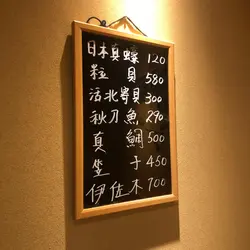 日本真蠔 120
粒貝 580
活北寄貝 300
秋刀魚 290
真鯛 500
笠子 450
伊佐木 700